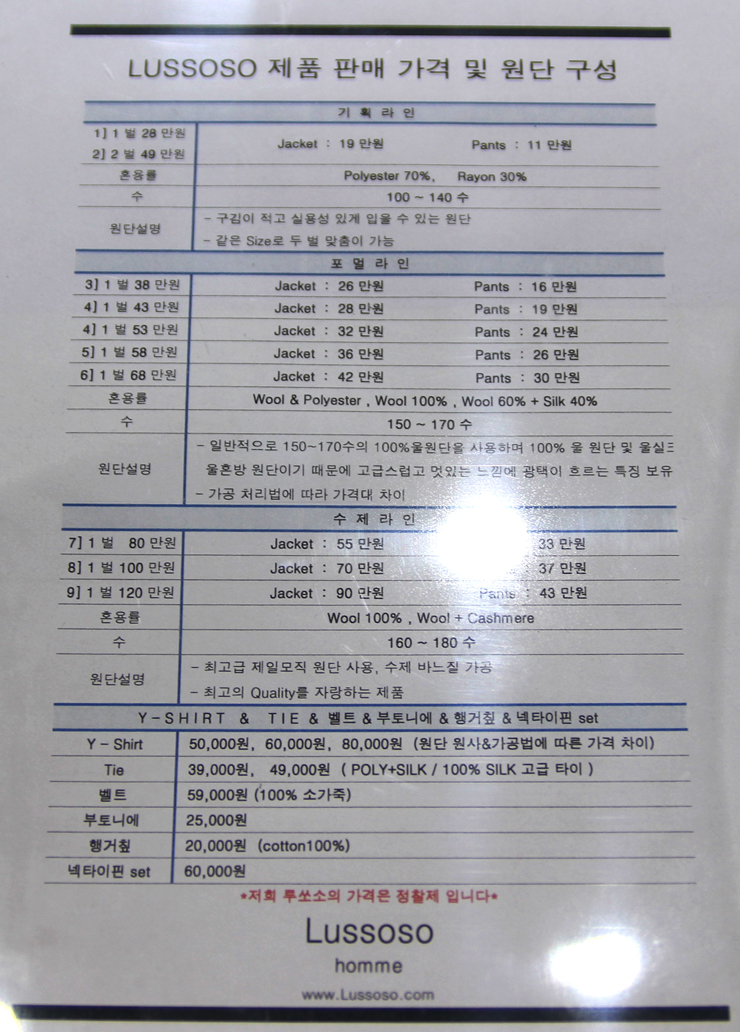 LUSSOSO 제품 판매 가격 및 원단 구성
기 획 라 인
1] 1 벌 28 만원
2] 2 벌 49 만원
Jacket : 19 만원 Pants : 11 만원
혼용률 Polyester 70%, Rayon 30%
수 100 ~ 140 수
원단설명
- 구김이 적고 실용성 있게 입을 수 있는 원단
- 같은 Size로 두 벌 맞춤이 가능
포 멀 라 인
3] 1 벌 38 만원 Jacket : 26 만원 Pants : 16 만원
4] 1 벌 43 만원 Jacket : 28 만원 Pants : 19 만원
4] 1 벌 53 만원 Jacket : 32 만원 Pants : 24 만원
5] 1 벌 58 만원 Jacket : 36 만원 Pants : 26 만원
6] 1 벌 68 만원 Jacket : 42 만원 Pants : 30 만원
혼용률 Wool & Polyester , Wool 100% , Wool 60% + Silk 40%
수 150 ~ 170 수
원단설명
- 일반적으로 150~170수의 100%울원단을 사용하며 100% 울 원단 및
울혼방 원단이기 때문에 고급스럽고 멋있는 느낌에 광택이 흐르는 특징 보유
- 가공 처리법에 따라 가격대 차이
수 제 라 인
7] 1 벌 80 만원 Jacket : 55 만원 33 만원
8] 1 벌 100 만원 Jacket : 70 만원 37 만원
9] 1 벌 120 만원 Jacket : 90 만원 Pants : 43 만원
혼용률 Wool 100% , Wool + Cashmere
수 160 ~ 180 수
원단설명
- 최고급 제일모직 원단 사용, 수제 바느질 가공
- 최고의 Quality를 자랑하는 제품
Y-SHIRT & TIE & 벨트 & 부토니에 & 행거칲 & 넥타이핀 set
Y - Shirt 50,000원, 60,000원, 80,000원 (원단 원사&가공법에 따른 가격 차이)
Tie 39,000원, 49,000원 ( POLY+SILK / 100% SILK 고급 타이 )
벨트 59,000원 (100% 소가죽)
부토니에 25,000원
행거칲 20,000원 (cotton100%)
넥타이핀 set 60,000원
*저희 루쏘소의 가격은 정찰제 입니다*
Lussoso
homme
www.Lussoso.com